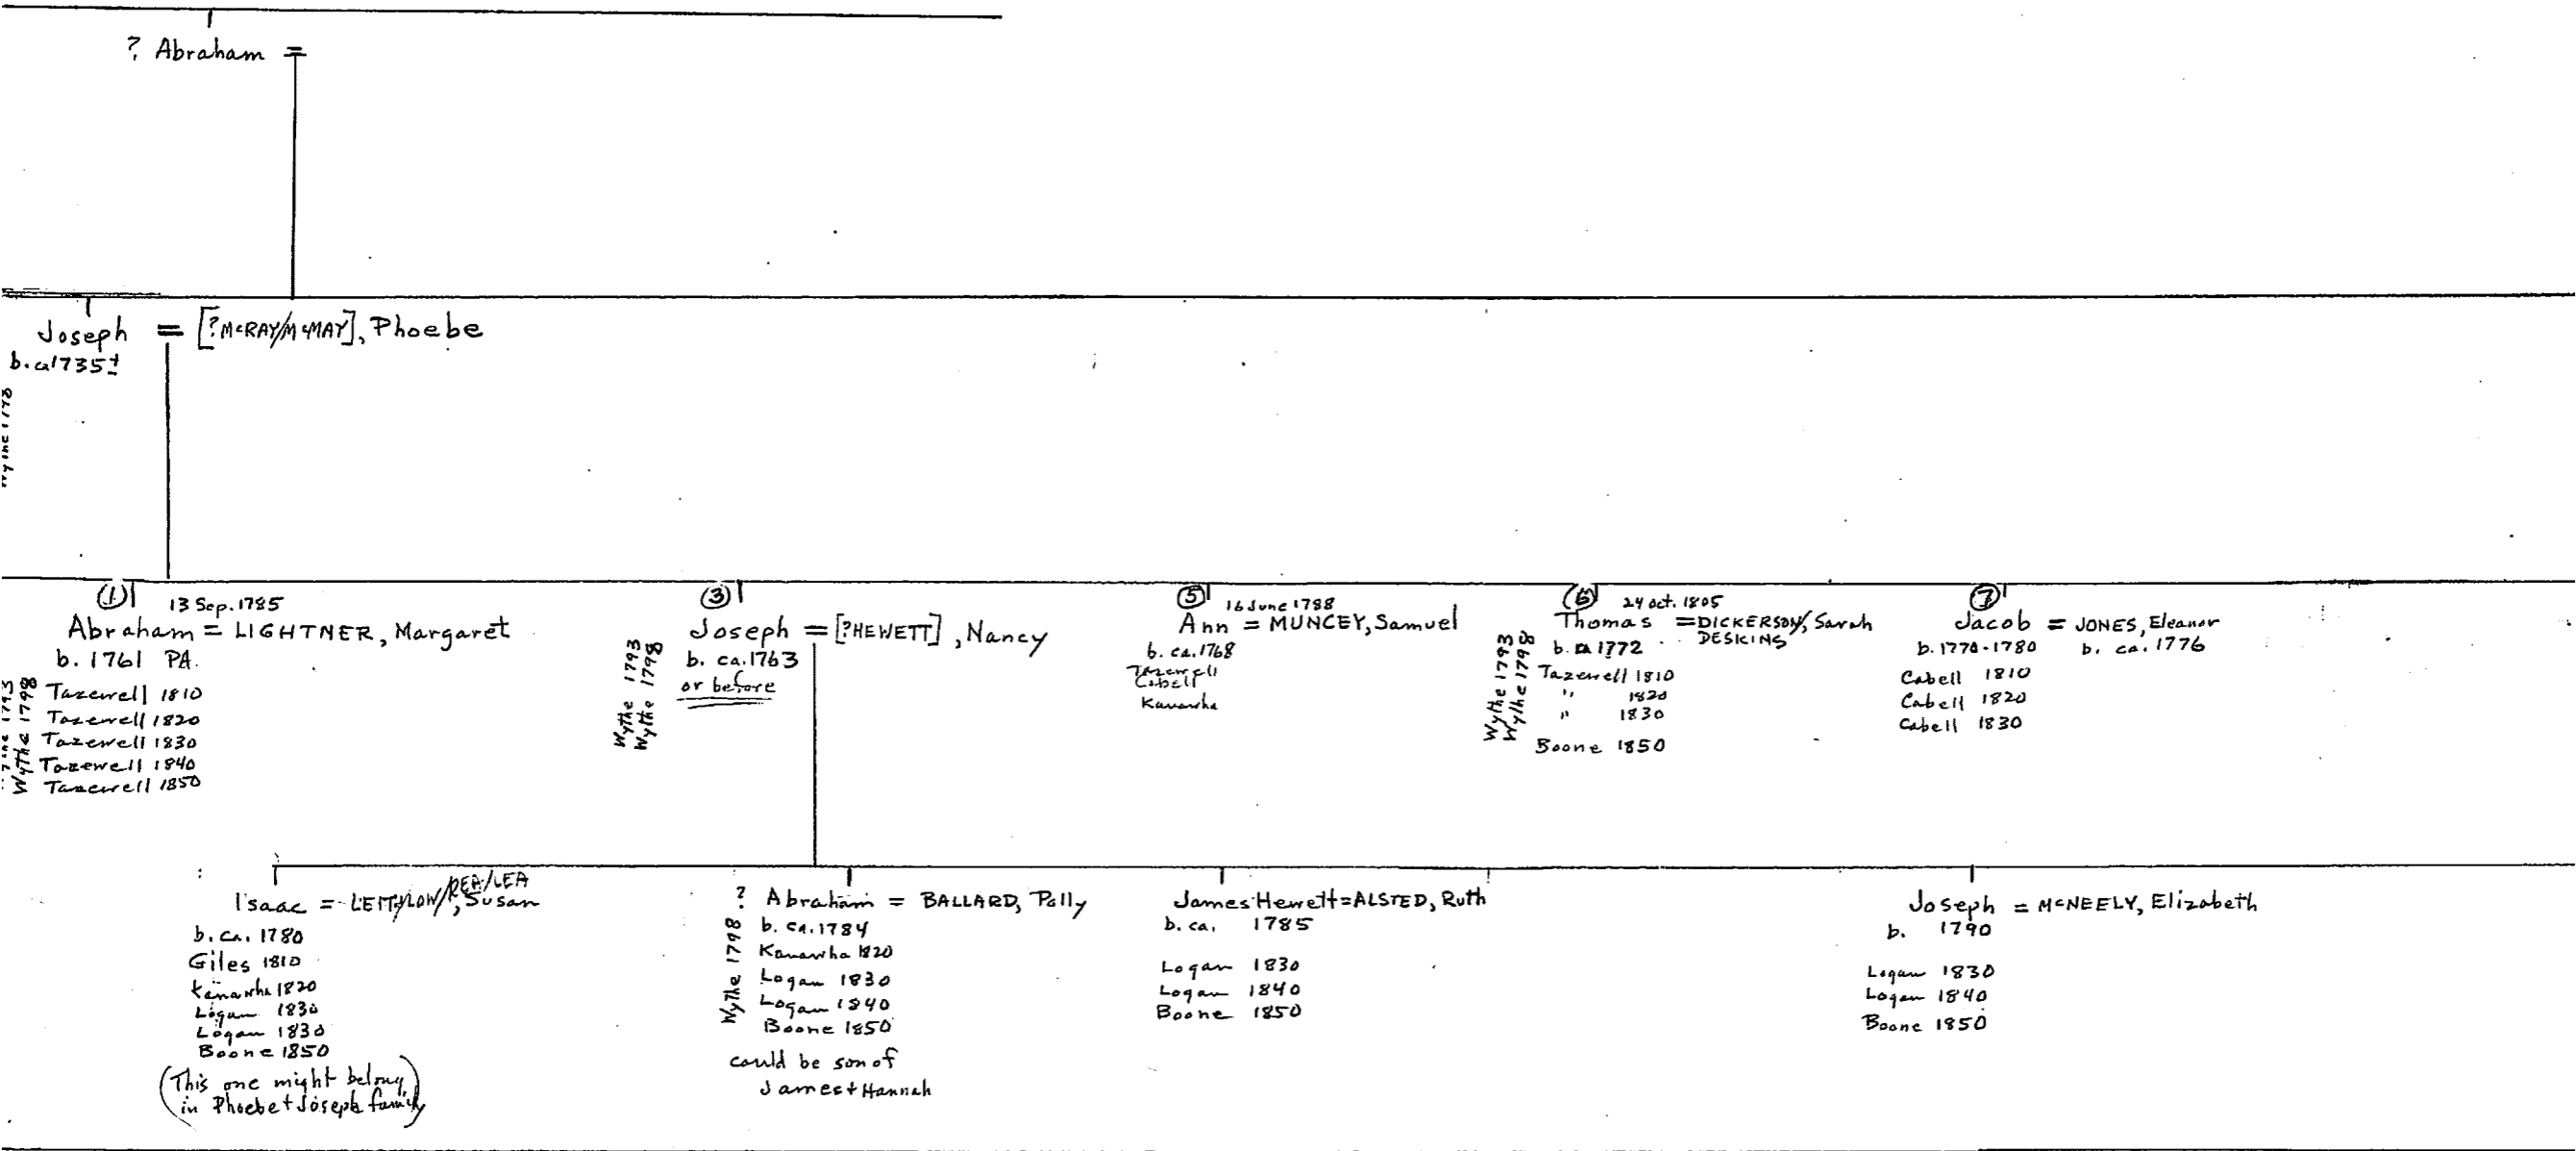 ? Abraham =
Joseph = [?McRAY/McMAY], Phoebe
b. ca 1735±
① 13 Sep. 1785
Abraham = LIGHTNER, Margaret
b. 1761 PA.
Wythe 1798
Tazewell 1810
Tazewell 1820
Tazewell 1830
Tazewell 1840
Tazewell 1850
③
Joseph = [?HEWETT], Nancy
b. ca. 1763
or before
Wythe 1793
Wythe 1798
⑤ 16 June 1788
Ann = MUNCEY, Samuel
b. ca. 1768
Tazewell
Cabell
Kanawha
⑥ 24 Oct. 1805
Thomas = DICKERSON/, Sarah
DESKINS
b. ca 1772
Wythe 1793
Wythe 1798
Tazewell 1810
" 1820
" 1830
Boone 1850
⑦
Jacob = JONES, Eleanor
b. 1770-1780 b. ca. 1776
Cabell 1810
Cabell 1820
Cabell 1830
Isaac = LEITH/LOW/REA/LEA, Susan
b. ca. 1780
Giles 1810
Kanawha 1820
Logan 1830
Logan 1830
Boone 1850
(This one might belong
in Phoebe + Joseph family)
? Abraham = BALLARD, Polly
b. ca. 1784
Wythe 1798
Kanawha 1820
Logan 1830
Logan 1840
Boone 1850
could be son of
James + Hannah
James Hewett = ALSTED, Ruth
b. ca. 1785
Logan 1830
Logan 1840
Boone 1850
Joseph = McNEELY, Elizabeth
b. 1790
Logan 1830
Logan 1840
Boone 1850